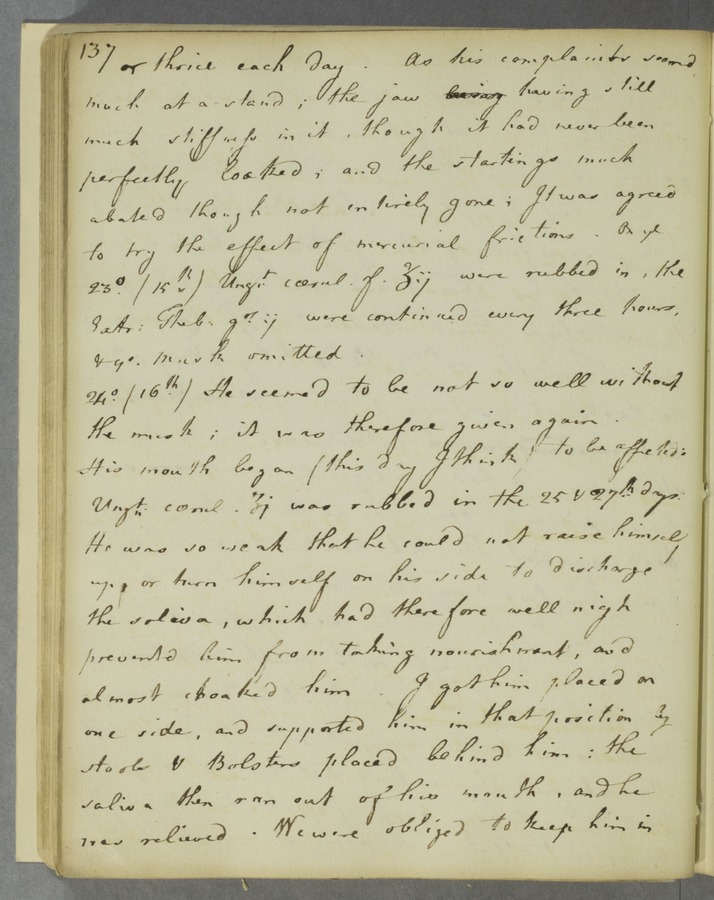 137 or thrice each day. As his complaints seemed
much at a stand; the jaw having still
much stiffness in it, though it had never been
perfectly locked; and the startings much
abated though not intirely gone; It was agreed
to try the effect of mercurial frictions. On ye
23o. (15th) Ungt. cœrul. f. ʒij were rubbed in, the
Extr: Theb: grs ij were continued every three hours,
& ye. musk omitted.
24o. (16th) He seemed to be not so well without
the musk; it was therefore given again.
His mouth began (this day I think) to be affected:
Ungt: cœrul. ʒj was rubbed in the 25 & 27th days.
He was so weak that he could not raise himself
up, or turn himself on his side to discharge
the saliva, which had therefore well nigh
prevented him from taking nourishment, and
almost choaked him. I got him placed on
one side, and supported him in that position by
stools & Bolsters placed behind him: the
saliva then ran out of his mouth, and he
was relieved. We were obliged to keep him in